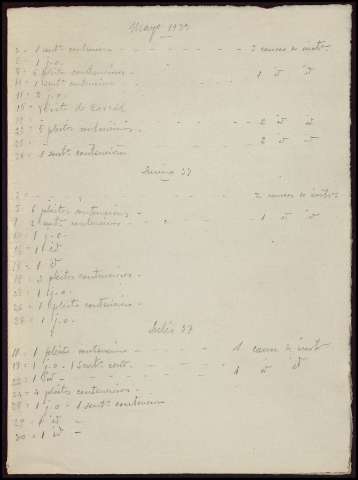 Mayo 1937
2 = 1 sentª contencioso - - - - 2 causas es instr.
5 = 1 j.o.
8 = 6 pleitos contenciosos - - - 1 id id
11 = 1 sentª contencioso
11 = 2 j.o.
15 =
19 = - - - 2 id id
23 = 5 pleitos contenciosos
25 = - - - 2 id id
26 = 1 sentª contencioso
Junio 37
2 = - - - 2 causas es instr
5 6 pleitos contenciosos - - - 1 id id
9 2 sentª contencioso - - -
10 = 1 j.o -
16 = 1 id
17 = 1 id
18 = 2 pleitos contenciosos -
23 = 1 j.o -
26 = 1 pleito contencioso -
28 = 1 j.o -
Julio 37
10 = 1 pleito contencioso - - - 1 causa es inst
19 = 1 j.o - 1 sentª cont. - - -
22 = 1 id - - - 1 id id
24 = 4 pleitos contenciosos -
28 = 1 j.o - 1 sentª contencioso
29 = 1 id -
30 = 1 id -